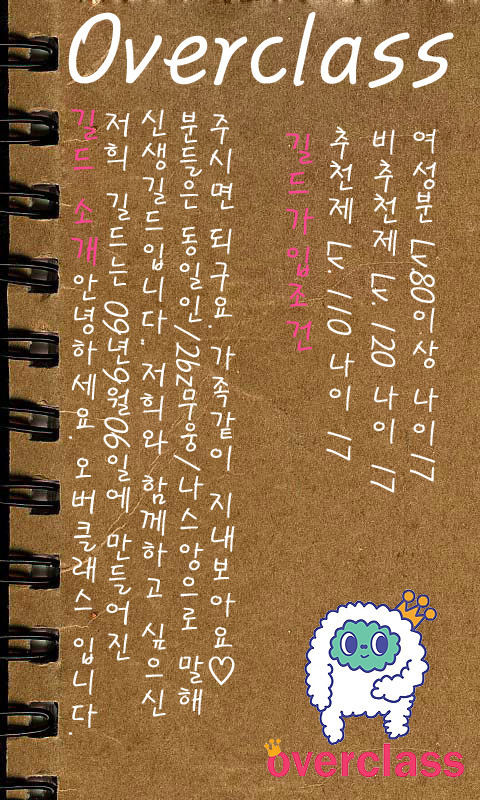 Overclass
길드 소개
안녕하세요. 오버클래스 입니다.
저희 길드는 09년9월06일에 만들어진
신생길드입니다. 저희와 함께하고 싶으신
분들은 동일인/2bz무웅/나스앙으로 말해
주시면 되구요. 가족같이 지내보아요♡
길드가입조건
추천제 Lv. 110 나이 17
비추천제 Lv. 120 나이 17
여성분 Lv80이상 나이17
overclass